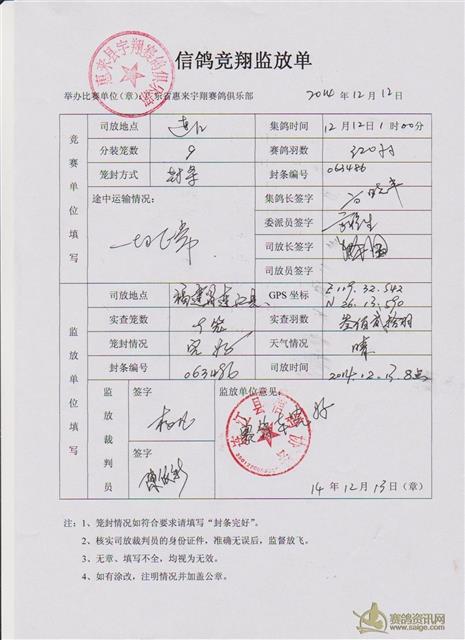 惠来县宇翔赛鸽俱乐部
信鸽竞翔监放单
举办比赛单位(章)广东省惠来宇翔赛鸽俱乐部 2014 年 12 月 12 日
竞赛单位填写
司放地点 连江 集鸽时间 12月12日1时00分
分装笼数 9 赛鸽羽数 320羽
笼封方式 封条 封条编号 063486
途中运输情况: 一切正常
集鸽长签字
委派员签字
司放长签字
司放员签字
监放单位填写
司放地点 福建省连江县 GPS 坐标 E 119.32.542
N 26.13.590
实查笼数 9笼 实查羽数 叁佰贰拾羽
笼封情况 完好 天气情况 晴
封条编号 063486 司放时间 2014.12.13.8点
监放裁判员
签字
签字
监放单位意见:
连江县 协会
14 年 12 月 13 日(章)
注:1、笼封情况如符合要求请填写“封条完好”。
2、核实司放裁判员的身份证件,准确无误后,监督放飞。
3、无章、填写不全,均视为无效。
4、如有涂改,注明情况并加盖公章。
赛鸽资讯网
www.saige.com